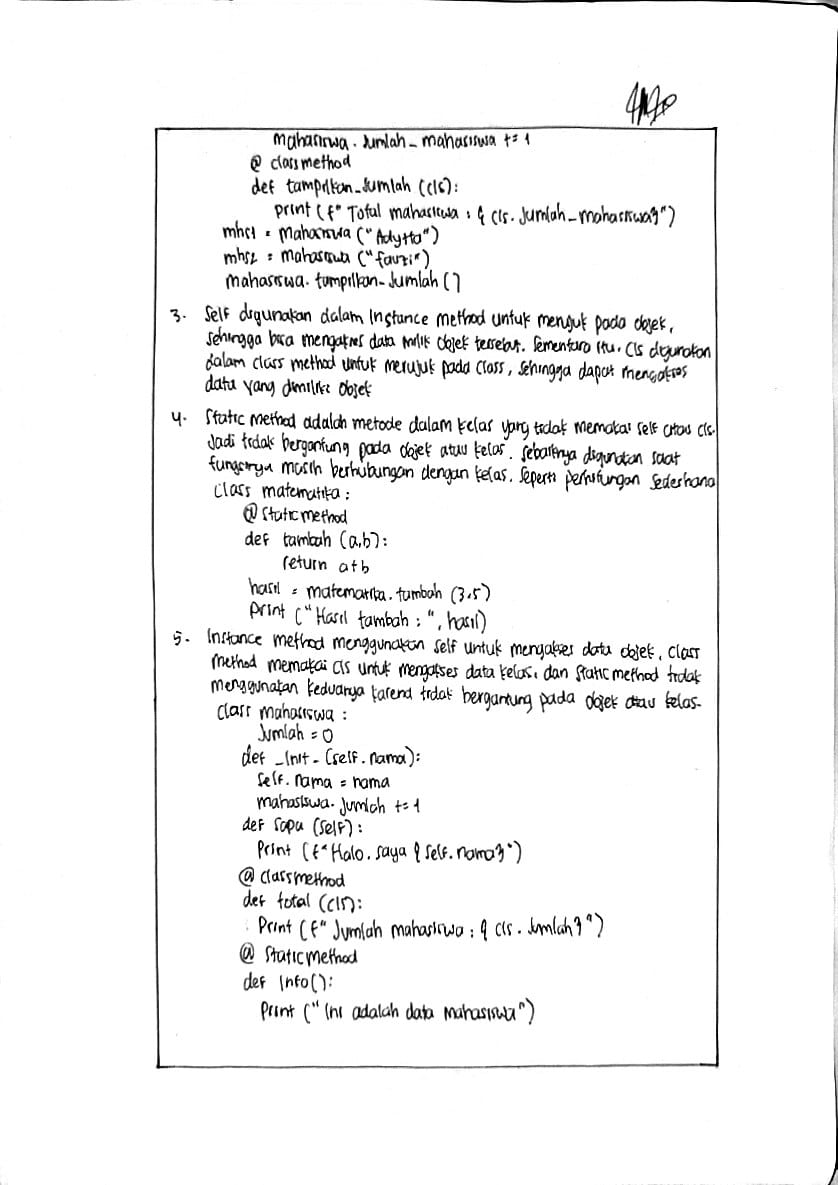 mahasiswa. Jumlah_mahasiswa += 1
@ classmethod
def tampilkan_Jumlah (cls):
print (f" Total mahasiswa : { cls. Jumlah_mahasiswa}")
mhs1 = Mahasiswa ("Adytta")
mhs2 = mahasiswa ("fauzi")
mahasiswa. tampilkan_Jumlah ()
3. Self digunakan dalam Instance method untuk merujuk pada objek,
sehingga bisa mengakses data milik objek tersebut. Sementara itu, Cls digunakan
dalam class method untuk merujuk pada class, sehingga dapat mengakses
data yang dimiliki objek
4. Static method adalah metode dalam kelas yang tidak memakai self atau cls.
Jadi tidak bergantung pada objek atau kelas. Sebaiknya digunakan saat
fungsinya masih berhubungan dengan kelas. Seperti perhitungan Sederhana
Class matematika :
@ Static method
def tambah (a,b):
return a+b
hasil = matematika. tambah (3,5)
Print ("Hasil tambah : ", hasil)
5. Instance method menggunakan self untuk mengakses data objek, Class
method memakai cls untuk mengakses data kelas, dan Static method tidak
menggunakan keduanya karena tidak bergantung pada objek atau kelas.
Class mahasiswa :
Jumlah = 0
def _init_ (self. nama):
Self. nama = nama
mahasiswa. Jumlah += 1
def Sapa (self):
Print (f" Halo. saya { self. nama}")
@ Classmethod
def total (cls):
Print (f" Jumlah mahasiswa : { cls. Jumlah}")
@ Static method
def Info():
Print (" Ini adalah data Mahasiswa")